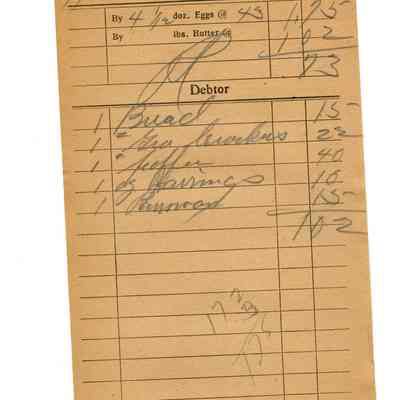 By 4 1/12 doz. Eggs @ 43 1,75
By lbs. Butter @ 1 02
73
Debtor
1 Bread 15
1 " Gra Crackers 22
1 " Coffee 40
1 dz 10
1 15
1 02